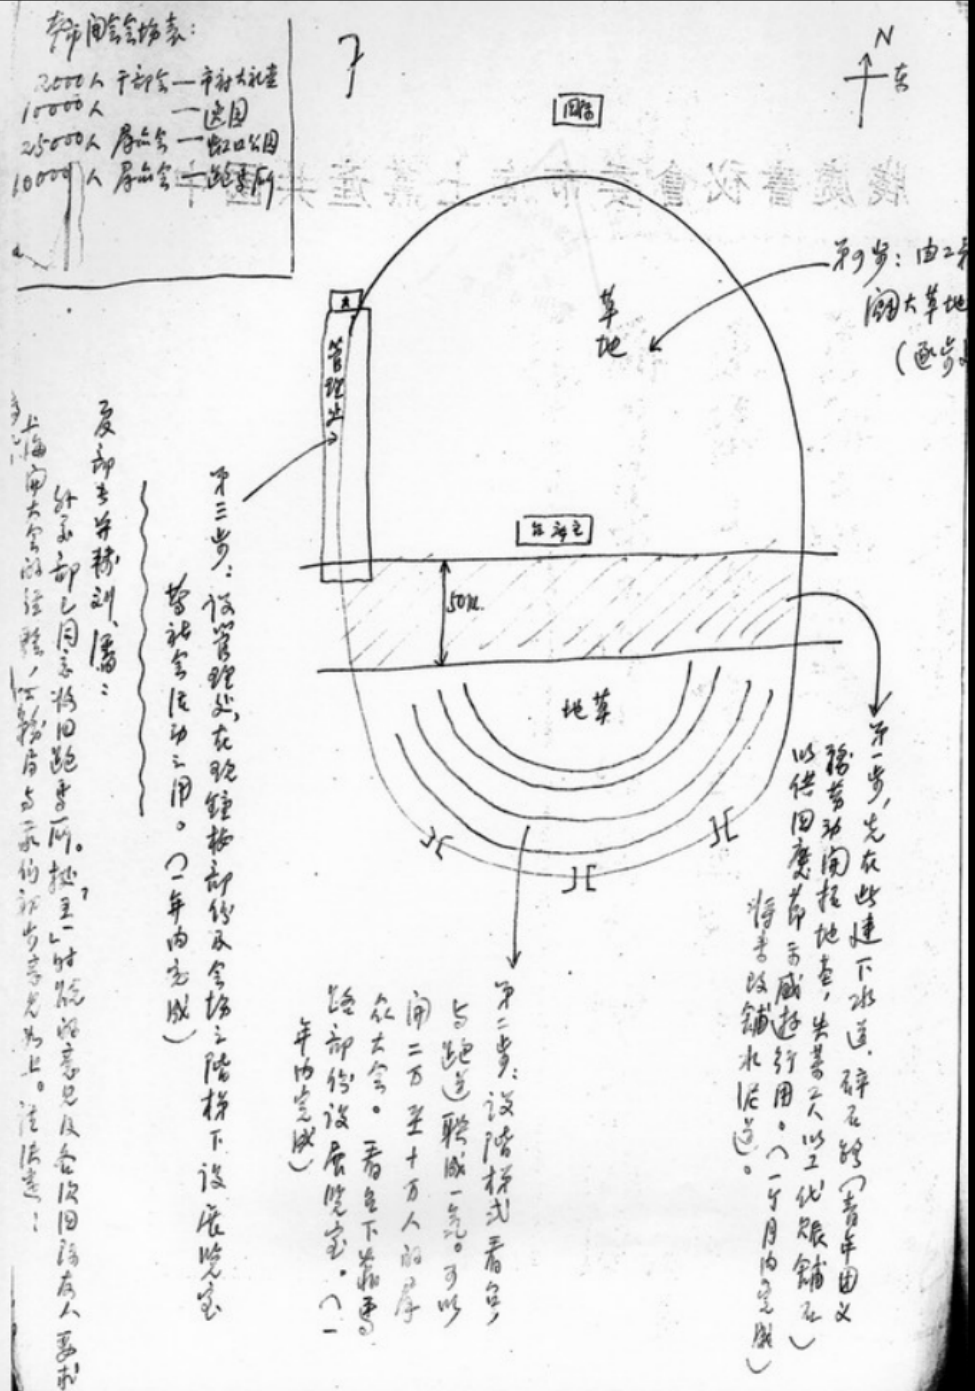 本市开会会场表:
2000人 干部会—市府大礼堂
10000人 —逸园
25000人 群众会—虹口公园
10000 人 群众会—跑马厅
N
东
第四步:由工务
(逐步
草
地
管理处
主席台
50M.
草地
第一步,先在此建下水道,碎石路(青年团义
务劳动开拓地基,失业工人以工代赈铺石)
以供国庆节示威游行用。(一个月内完成)
将来改铺水泥道。
第二步:设阶梯式看台,
与跑道联成一气。可以
开二万至十万人的群
众大会。看台下靠马
路部份设展览室。(一
年内完成)
第三步:设管理处,在现钟楼部份及会场之阶梯下设展览室
等社会活动之用。(一年内完成)
夏部长并转刘、潘:
外交部已同意将旧跑马厅
上海开大会的经验,工务局与我们初步意见如上。